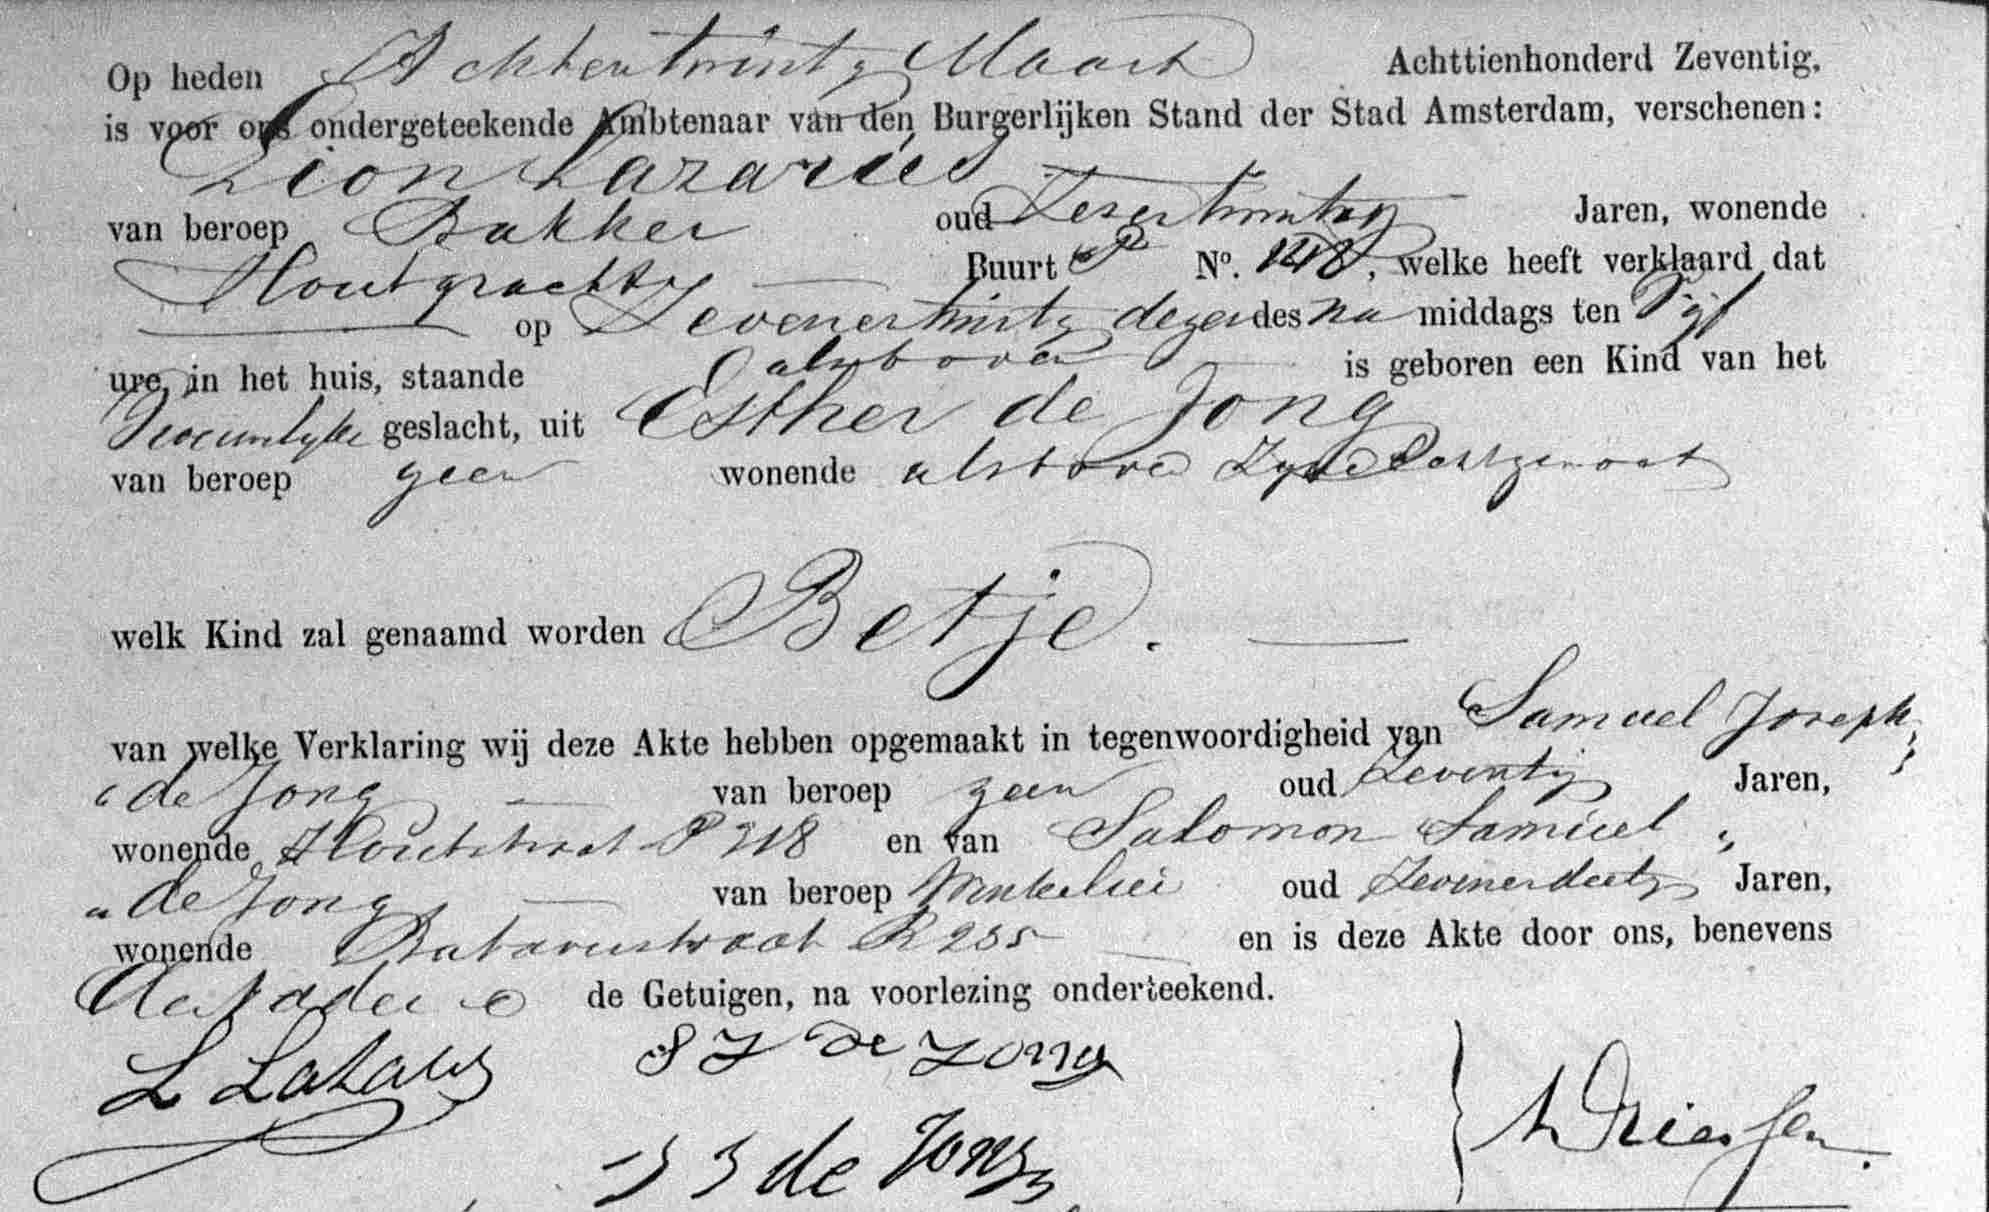 Op heden Achtentwintig Maart Achttienhonderd Zeventig,
is voor ons ondergeteekende Ambtenaar van den Burgerlijken Stand der Stad Amsterdam, verschenen:
Lion Lazarus
van beroep Bakker oud Zesentwintig Jaren, wonende
Houtgracht Buurt P No. 148, welke heeft verklaard dat
op Zevenentwintig dezer des na middags ten Vijf
ure, in het huis, staande alsboven is geboren een Kind van het
Vrouwelijke geslacht, uit Esther de Jong
van beroep geen wonende alsboven Zyne Echtgenoot
welk Kind zal genaamd worden Betje.
van welke Verklaring wij deze Akte hebben opgemaakt in tegenwoordigheid van Samuel Joseph
de Jong van beroep geen oud Zeventig Jaren,
wonende Houtstraat P 318 en van Salomon Samuel
de Jong van beroep Winkelier oud Zevenendertig Jaren,
wonende Batavierstraat R 235 en is deze Akte door ons, benevens
de Vader e de Getuigen, na voorlezing onderteekend.
L Lazarus S J de Jong
S S de Jong A Driessen